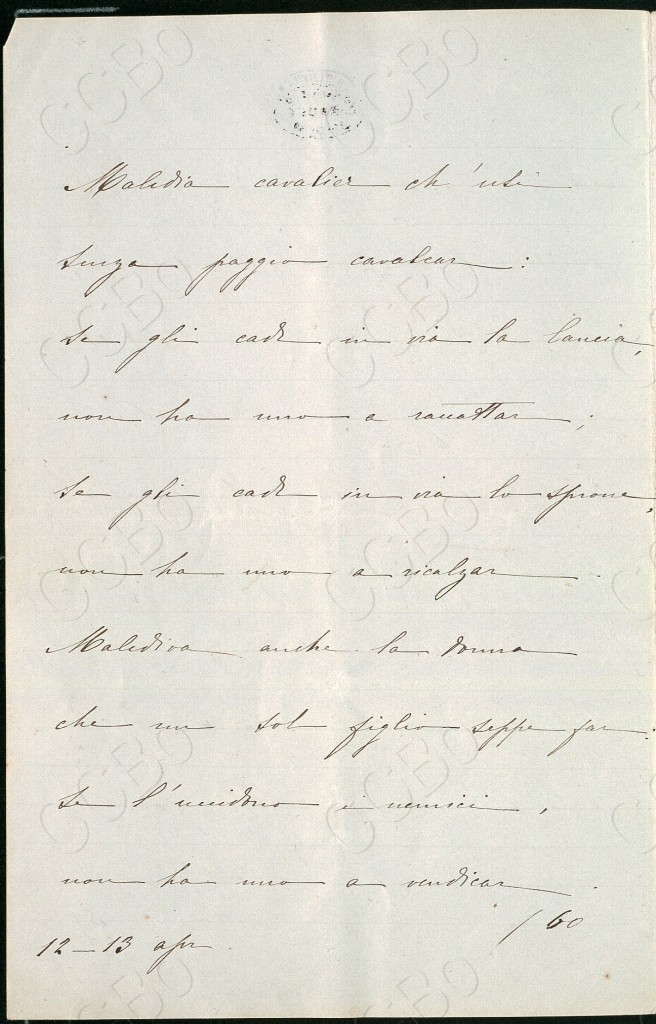 Maledia cavalier ch'usi
senza paggio cavalcar:
se gli cade in via la lancia,
non ha uno a raccattar;
se gli cade in via lo sprone,
non ha uno a ricalzar.
Maledica anche la donna
che un sol figlio seppe far:
se l'uccidono i nemici,
non ha uno a vendicar.
/60
12-13 apr.
CCBO